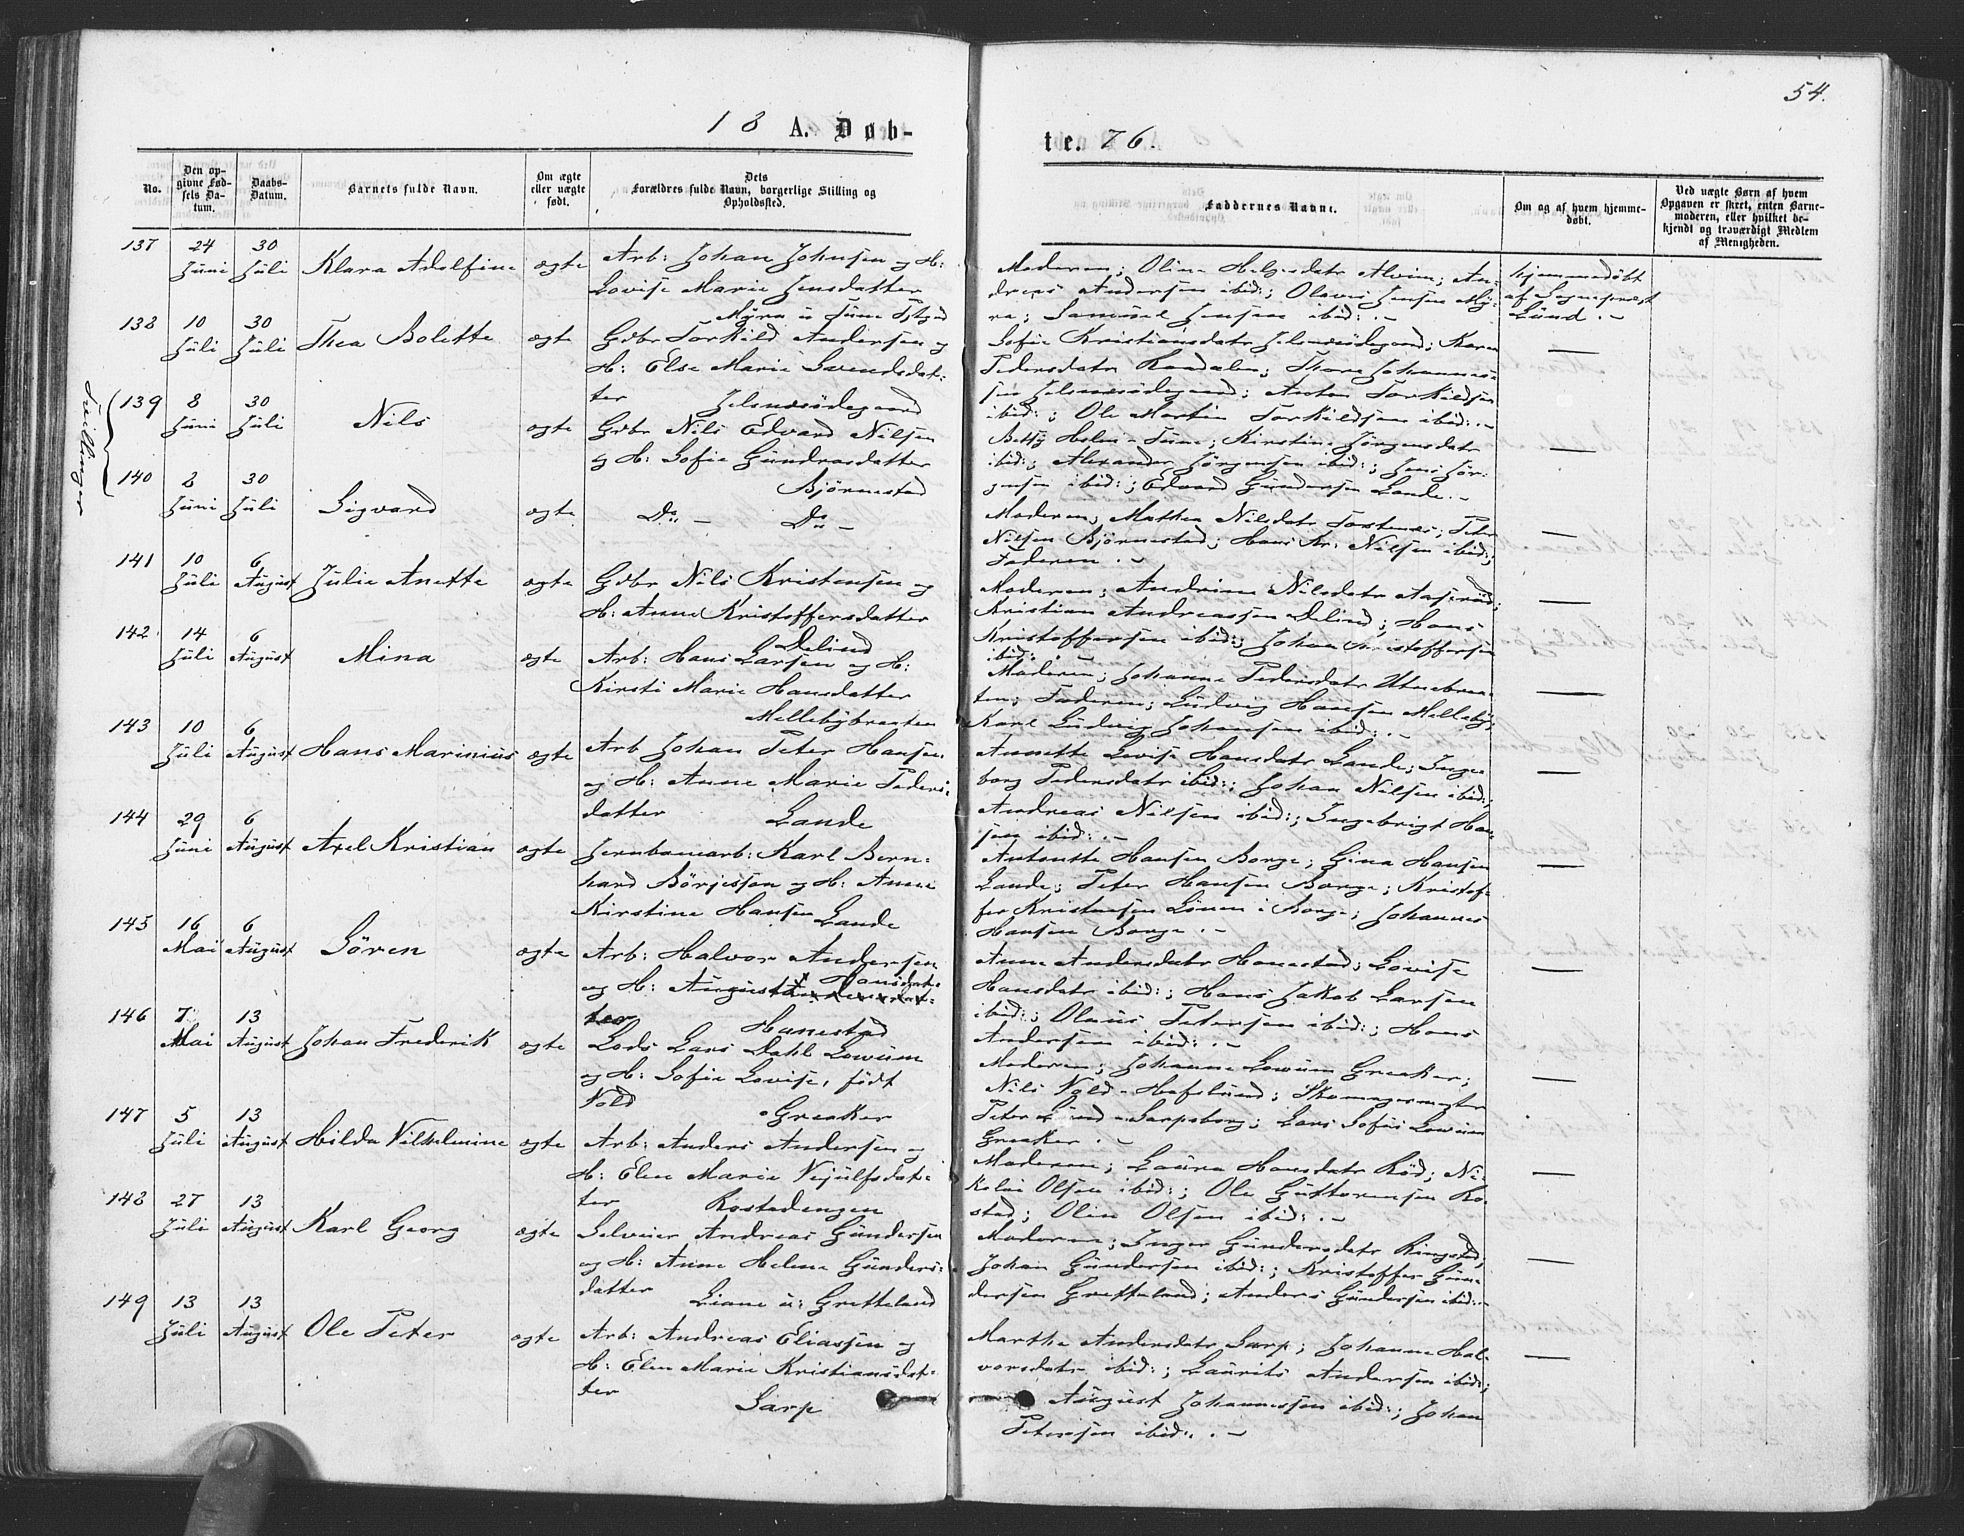 54.
18 A. Døb-
te. 76.
No.
Den op-
givne Fød-
sels Da-
tum.
Daabs-
Datum.
Barnets fulde Navn.
Om ægte
eller uægte
født.
Dets
Forældres fulde Navn, borgerlige Stilling og
Opholdssted.
Faddernes Navne.
Om og af hvem hjemme-
døbt.
Ved uægte Børn af hvem
Opgaven er skeet, enten Barne-
moderen, eller hvilket be-
kjendt og troværdigt Medlem
af Menigheden.
137 24 Juni 30 Juli Klara Adolfine ægte
Arb: Johan Johnsen og H:
Lovise Marie Jensdatter
Myra u Tune
Moderen; Oline Helgesdatr Alvim; An-
dreas Andersen ibid:; Olavus Jensen My-
ra; Samuel Jensen ibid: .-
hjemmedøbt
af Sognepræst
Lund .-
138 10 Juli 30 Juli Thea Bolette ægte
Gdbr Torkild Andersen og
H: Else Marie Svendsdat-
ter
Sofie Kristiansdatr; Karen
Pedersdatr; Thore Johannes-
sen; Anton Torkildsen
ibid:; Ole Martin Torkildsen ibid: .-
—
Tvillinger
139 8 Juni 30 Juli Nils ægte
Gdbr Nils Edvard Nilsen
og H: Sofie Gundrosdatter
Bjørnestad
Betty Holm - Tune; Kirstine Jørgensdatr
ibid:; Alexander Jørgensen ibid:; Jens Jør-
gensen ibid:; Edvard Gundersen Lande .-
—
140 8 Juni 30 Juli Sigvard ægte
Do - Do -
Moderen; Mathea Nilsdatr; Peter
Nilsen Bjørnestad; Hans Kr: Nilsen ibid:;
Faderen .-
—
141 10 Juli 6 August Julie Anette ægte
Gdbr Nils Kristensen og
H: Anne Kristoffersdatter
Delind
Moderen; Andrine Nilsdatr;
Kristian Andreassen Delind; Hans
Kristoffersen ibid:; Johan Kristoffersen
ibid: .-
—
142 14 Juli 6 August Mina ægte
Arb: Hans Larsen og H:
Kirsti Marie Hansdatter
Mellebybraaten
Moderen; Johanne Pedersdatr Utnebraa-
ten; Faderen; Ludvig Hansen Melleby;
Karl Ludvig Johansen ibid: .-
—
143 10 Juli 6 August Hans Marinius ægte
Arb Johan Peter Hansen
og H: Anne Marie Peders-
datter Lande
Annette Lovise Hansdatr Lande; Inge-
borg Pedersdatr ibid:; Johan Nilsen ibid:;
Andreas Nilsen ibid:; Ingebrigt Han-
sen ibid: .-
—
144 29 Juni 6 August Axel Kristian ægte
Jernbanearb: Karl Bern-
hard Börjesson og H: Anne
Kirstine Hansen Lande
Antonette Hansen Borge; Gina Hansen
Lande; Peter Hansen Borge; Kristof-
fer Kristensen i Borge; Johannes
Hansen Borge .-
—
145 16 Mai 6 August Søren ægte
Arb: Halvor Andersen
og H: Augusta Hansdat-
ter Hanestad
Anne Andersdatr Hanestad; Lovise
Hansdatr ibid:; Hans Jakob Larsen
ibid:; Olaus Petersen ibid:; Hans
Andersen ibid: .-
—
146 7 Mai 13 August Johan Frederik ægte
Lods Lars Dahl Lowum
og H: Sofie Lovise, født
Vold Greaker
Moderen; Johanne Lowum Greaker;
Nils Vold - Hafslund; Skomagermester
Peter Lund - Sarpsborg; Lars Lowum
Greaker .-
—
147 5 Juli 13 August Hilda Vilhelmine ægte
Arb: Anders Andersen og
H: Elen Marie Vejulfsdat-
ter Rostadengen
Moderen; Laura Hansdatr Rød; Ni-
kolai Olsen ibid:; Ole Guttormsen Ro-
stad; Olin Olsen ibid: .-
—
148 27 Juli 13 August Karl Georg ægte
Selveier Andreas Gundersen
og H: Anne Helene Gunders-
datter
Liane u: Gretteland
Moderen; Inger Gundersdatr Ringstad;
Johan Gundersen ibid:; Kristoffer Gun-
dersen Gretteland; Anders Gundersen ibid: -
—
149 13 Juli 13 August Ole Peter ægte
Arb: Andreas Eliassen og
H: Elen Marie Kristiansdat-
ter
Sarp
Marthe Andersdatr Sarp; Johanne Hal-
vorsdatr ibid:; Laurits Andersen ibid:;
August Johannessen ibid:; Johan
Petersen ibid: .-
—